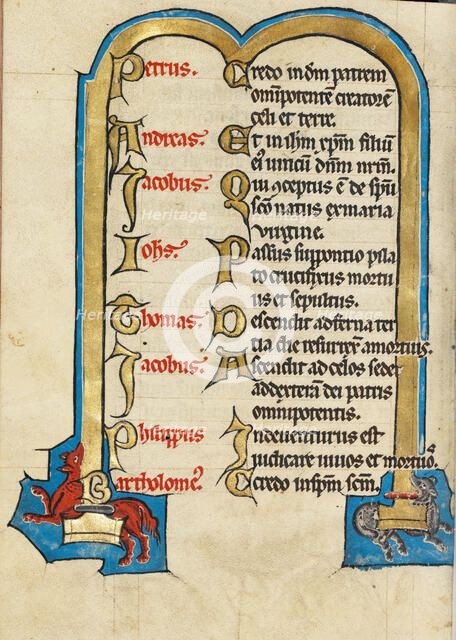 Petrus. Credo in dm̄ patrem
om̄ipotentē creatorē
celi et terre.
Andreas. Et in ihm̄ xp̄m filiū
eiꝰ unicū dn̄m nr̄m.
Jacobus. Qui ꝯceptus ē de spū
sc̄o natus ex maria
virgine.
Iohs̄. Passus sub pontio pila
to crucifixus mortu
us et sepultus.
Thomas. Descendit ad inferna ter
tia die resurrex̄ a mortuis.
Jacobus. Ascendit ad celos sedet
ad dexterā dei patris
omnipotentis.
Philippus Inde venturus est
iudicare vivos et mortuoˢ
Bartholomeꝰ. Credo in spm̄ scm̄.
Heritage
Heritage
Heritage
Heritage
Heritage